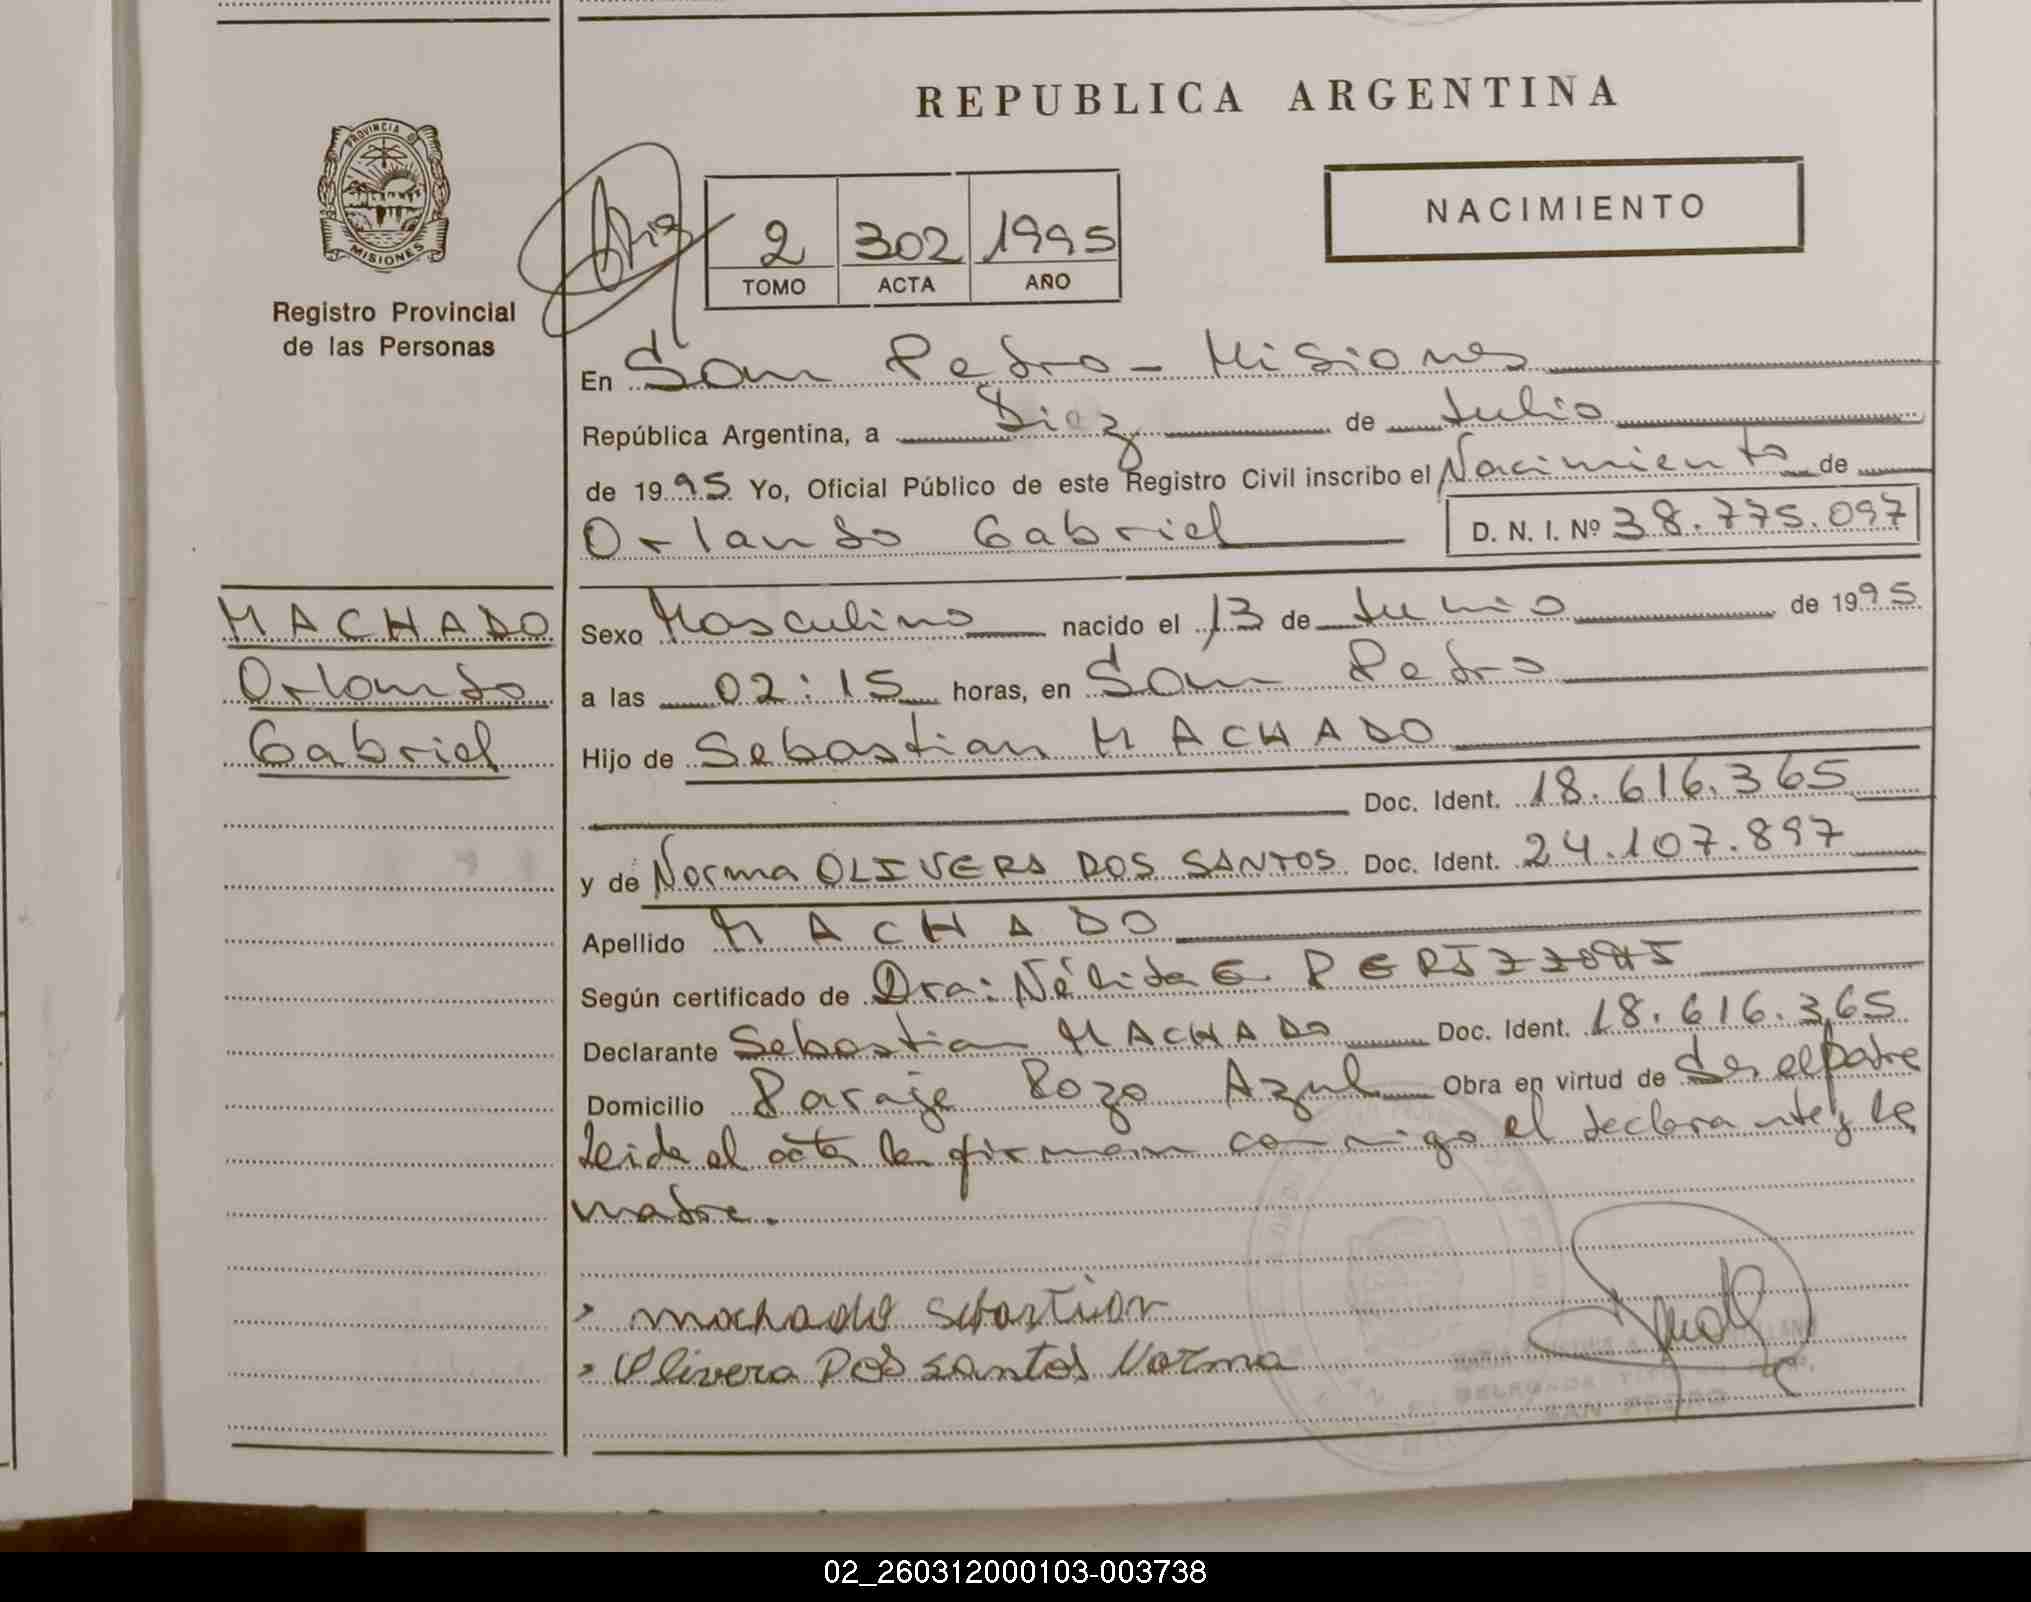 REPUBLICA ARGENTINA
PROVINCIA D
MISIONES
Registro Provincial
de las Personas
2 302 1995
TOMO ACTA AÑO
NACIMIENTO
En San Pedro - Misiones
República Argentina, a Diez de Julio
de 1995 Yo, Oficial Público de este Registro Civil inscribo el Nacimiento de
Orlando Gabriel D. N. I. Nº 38.775.097
MACHADO
Orlando
Gabriel
Sexo Masculino nacido el 13 de Junio de 1995
a las 02:15 horas, en San Pedro
Hijo de Sebastian MACHADO
Doc. Ident. 18.616.365
y de Norma OLIVERA DOS SANTOS Doc. Ident. 24.107.897
Apellido MACHADO
Según certificado de Dra: Nélida E.
Declarante Sebastian MACHADO Doc. Ident. 18.616.365
Domicilio Paraje Pozo Azul Obra en virtud de Ser el padre
Leida el acta la firman conmigo el declarante y la
madre.
machado Sebastian
Olivera Dos santos Norma
SAN PEDRO
02_260312000103-003738